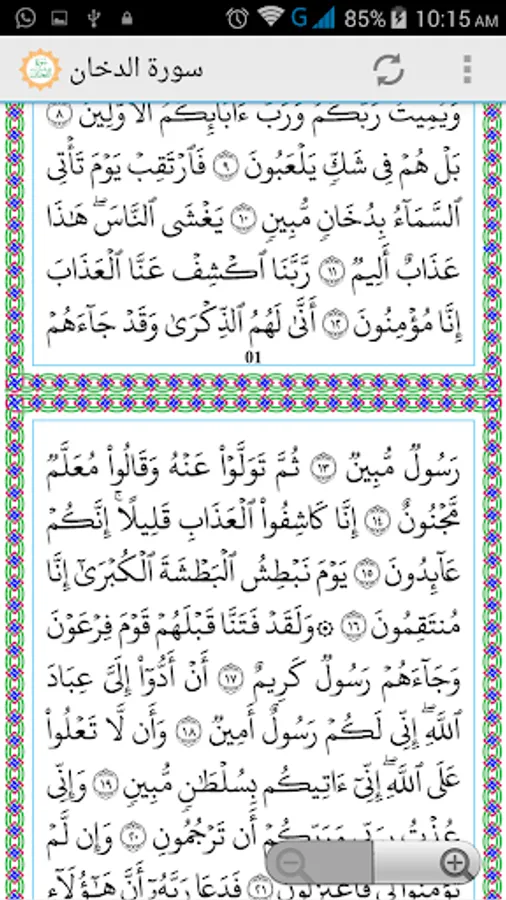 G 85% 10:15 AM
سورة الدخان
وَيُمِيتُ رَبُّكُمْ وَرَبُّ ءَابَآئِكُمُ ٱلْأَوَّلِينَ ٨
بَلْ هُمْ فِى شَكٍّ يَلْعَبُونَ ٩ فَٱرْتَقِبْ يَوْمَ تَأْتِى
ٱلسَّمَآءُ بِدُخَانٍ مُّبِينٍ ١٠ يَغْشَى ٱلنَّاسَ ۖ هَٰذَا
عَذَابٌ أَلِيمٌ ١١ رَّبَّنَا ٱكْشِفْ عَنَّا ٱلْعَذَابَ
إِنَّا مُؤْمِنُونَ ١٢ أَنَّىٰ لَهُمُ ٱلذِّكْرَىٰ وَقَدْ جَآءَهُمْ
01
رَسُولٌ مُّبِينٌ ١٣ ثُمَّ تَوَلَّوْا۟ عَنْهُ وَقَالُوا۟ مُعَلَّمٌ
مَّجْنُونٌ ١٤ إِنَّا كَاشِفُوا۟ ٱلْعَذَابِ قَلِيلًا ۚ إِنَّكُمْ
عَآئِدُونَ ١٥ يَوْمَ نَبْطِشُ ٱلْبَطْشَةَ ٱلْكُبْرَىٰٓ إِنَّا
مُنتَقِمُونَ ١٦ ۞ وَلَقَدْ فَتَنَّا قَبْلَهُمْ قَوْمَ فِرْعَوْنَ
وَجَآءَهُمْ رَسُولٌ كَرِيمٌ ١٧ أَنْ أَدُّوٓا۟ إِلَىَّ عِبَادَ
ٱللَّهِ ۖ إِنِّى لَكُمْ رَسُولٌ أَمِينٌ ١٨ وَأَن لَّا تَعْلُوا۟
عَلَى ٱللَّهِ ۖ إِنِّىٓ ءَاتِيكُم بِسُلْطَٰنٍ مُّبِينٍ ١٩ وَإِنِّى
عُذْتُ بِرَبِّى وَرَبِّكُمْ أَن تَرْجُمُونِ ٢٠ وَإِن لَّمْ
تُؤْمِنُوا۟ لِى فَٱعْتَزِلُونِ ٢١ فَدَعَا رَبَّهُۥٓ أَنَّ هَٰٓؤُلَآءِ